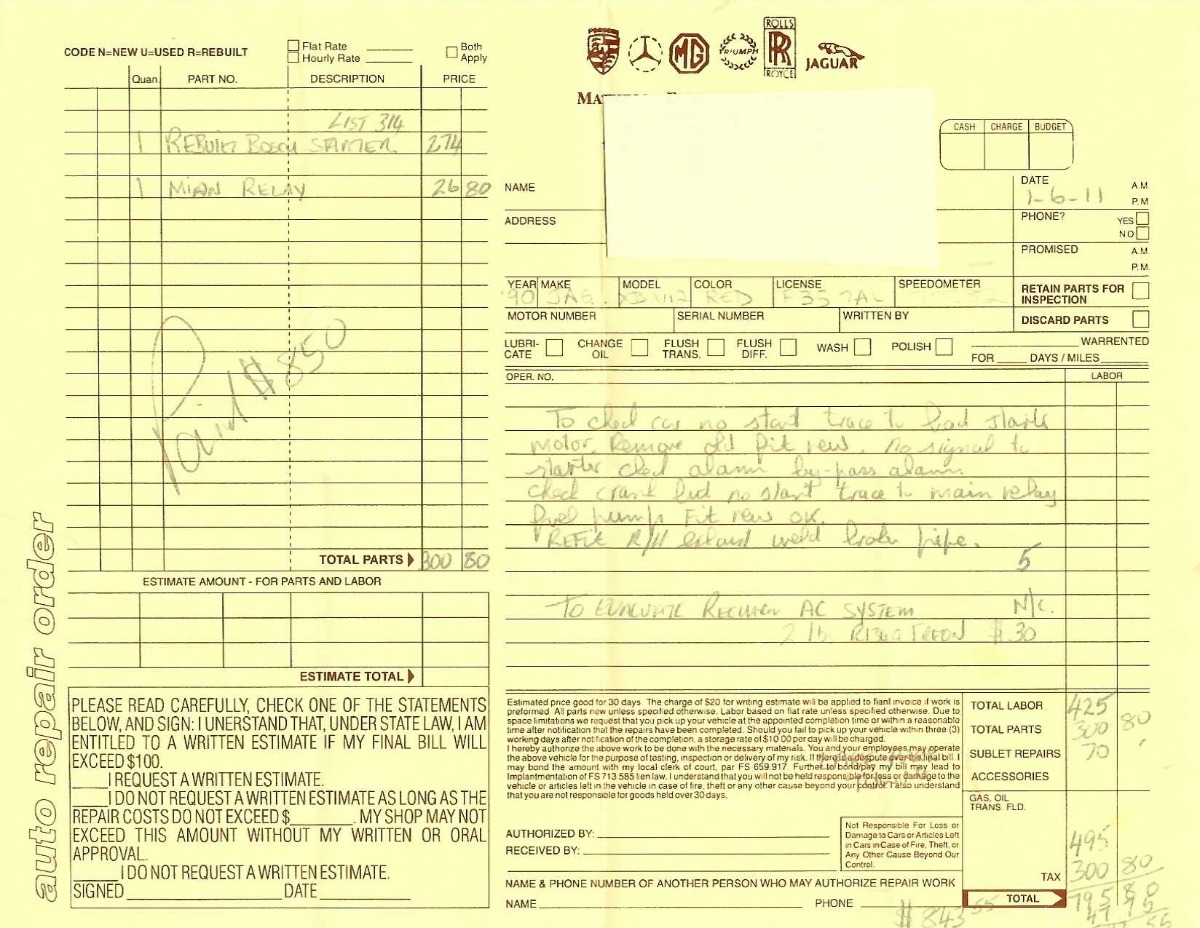 CODE N=NEW U=USED R=REBUILT
Flat Rate
Hourly Rate
Both Apply
Quan. PART NO. DESCRIPTION PRICE
LIST 314
1 REBUILT BOSCH STARTER 274
1 MIAN RELAY 26 80
Paid $850
TOTAL PARTS 300 80
ESTIMATE AMOUNT - FOR PARTS AND LABOR
ESTIMATE TOTAL
auto repair order
PLEASE READ CAREFULLY, CHECK ONE OF THE STATEMENTS
BELOW, AND SIGN: I UNERSTAND THAT, UNDER STATE LAW, I AM
ENTITLED TO A WRITTEN ESTIMATE IF MY FINAL BILL WILL
EXCEED $100.
I REQUEST A WRITTEN ESTIMATE.
I DO NOT REQUEST A WRITTEN ESTIMATE AS LONG AS THE
REPAIR COSTS DO NOT EXCEED $ . MY SHOP MAY NOT
EXCEED THIS AMOUNT WITHOUT MY WRITTEN OR ORAL
APPROVAL.
I DO NOT REQUEST A WRITTEN ESTIMATE.
SIGNED DATE
PORSCHE
MG
TRIUMPH
ROLLS
RR
ROYCE
JAGUAR
CASH CHARGE BUDGET
NAME
DATE A M
1-6-11 P. M
ADDRESS
PHONE? YES
NO
PROMISED A.M.
P.M.
YEAR MAKE MODEL COLOR LICENSE SPEEDOMETER
'90 JAG. V12 RED
RETAIN PARTS FOR
INSPECTION
MOTOR NUMBER SERIAL NUMBER WRITTEN BY
DISCARD PARTS
LUBRI-
CATE
CHANGE
OIL
FLUSH
TRANS.
FLUSH
DIFF.
WASH
POLISH
WARRENTED
FOR DAYS / MILES
OPER. NO. LABOR
To check car no start trace to bad starter
motor. Remove old fit new. No signal to
starter check alarm by-pass alarm.
check crank but no start trace to main relay
fuel pumps Fit new OK.
REFIT R/H exhaust weld broken pipe.
5
TO EVACUATE AC SYSTEM N/C.
2 lb. FREON $ 30
Estimated price good for 30 days. The charge of $20 for writing estimate will be applied to fianl invoice if work is
preformed. All parts new unless specified otherwise. Labor based on flat rate unless specified otherwise. Due to
space limitations we request that you pick up your vehicle at the appointed completion time or within a reasonable
time after notification that the repairs have been completed. Should you fail to pick up your vehicle within three (3)
working days after notification of the completion, a storage rate of $10.00 per day will be charged.
I hereby authorize the above work to be done with the necessary materials. You and your employees may operate
the above vehicle for the purpose of testing, inspection or delivery of my risk. If there is dispute over final bill. I
may bond the amount with my local clerk of court, par FS 659.917. Further to bond/pay my bill may lead to
Implantmentation of FS 713.585 lien law. I understand that you will not be held responsible for loss or damage to the
vehicle or articles left in the vehicle in case of fire, theft or any other cause beyond your control. I also understand
that you are not responsible for goods held over 30 days.
TOTAL LABOR 425
TOTAL PARTS 300 80
SUBLET REPAIRS 70
ACCESSORIES
GAS, OIL
TRANS. FLD.
AUTHORIZED BY:
RECEIVED BY:
Not Responsible For Loss or
Damage to Cars or Articles Left
in Cars in Case of Fire, Theft, or
Any Other Cause Beyond Our
Control.
495
TAX 300 80
NAME & PHONE NUMBER OF ANOTHER PERSON WHO MAY AUTHORIZE REPAIR WORK
NAME PHONE
TOTAL 795 80
47 75
$ 843 55